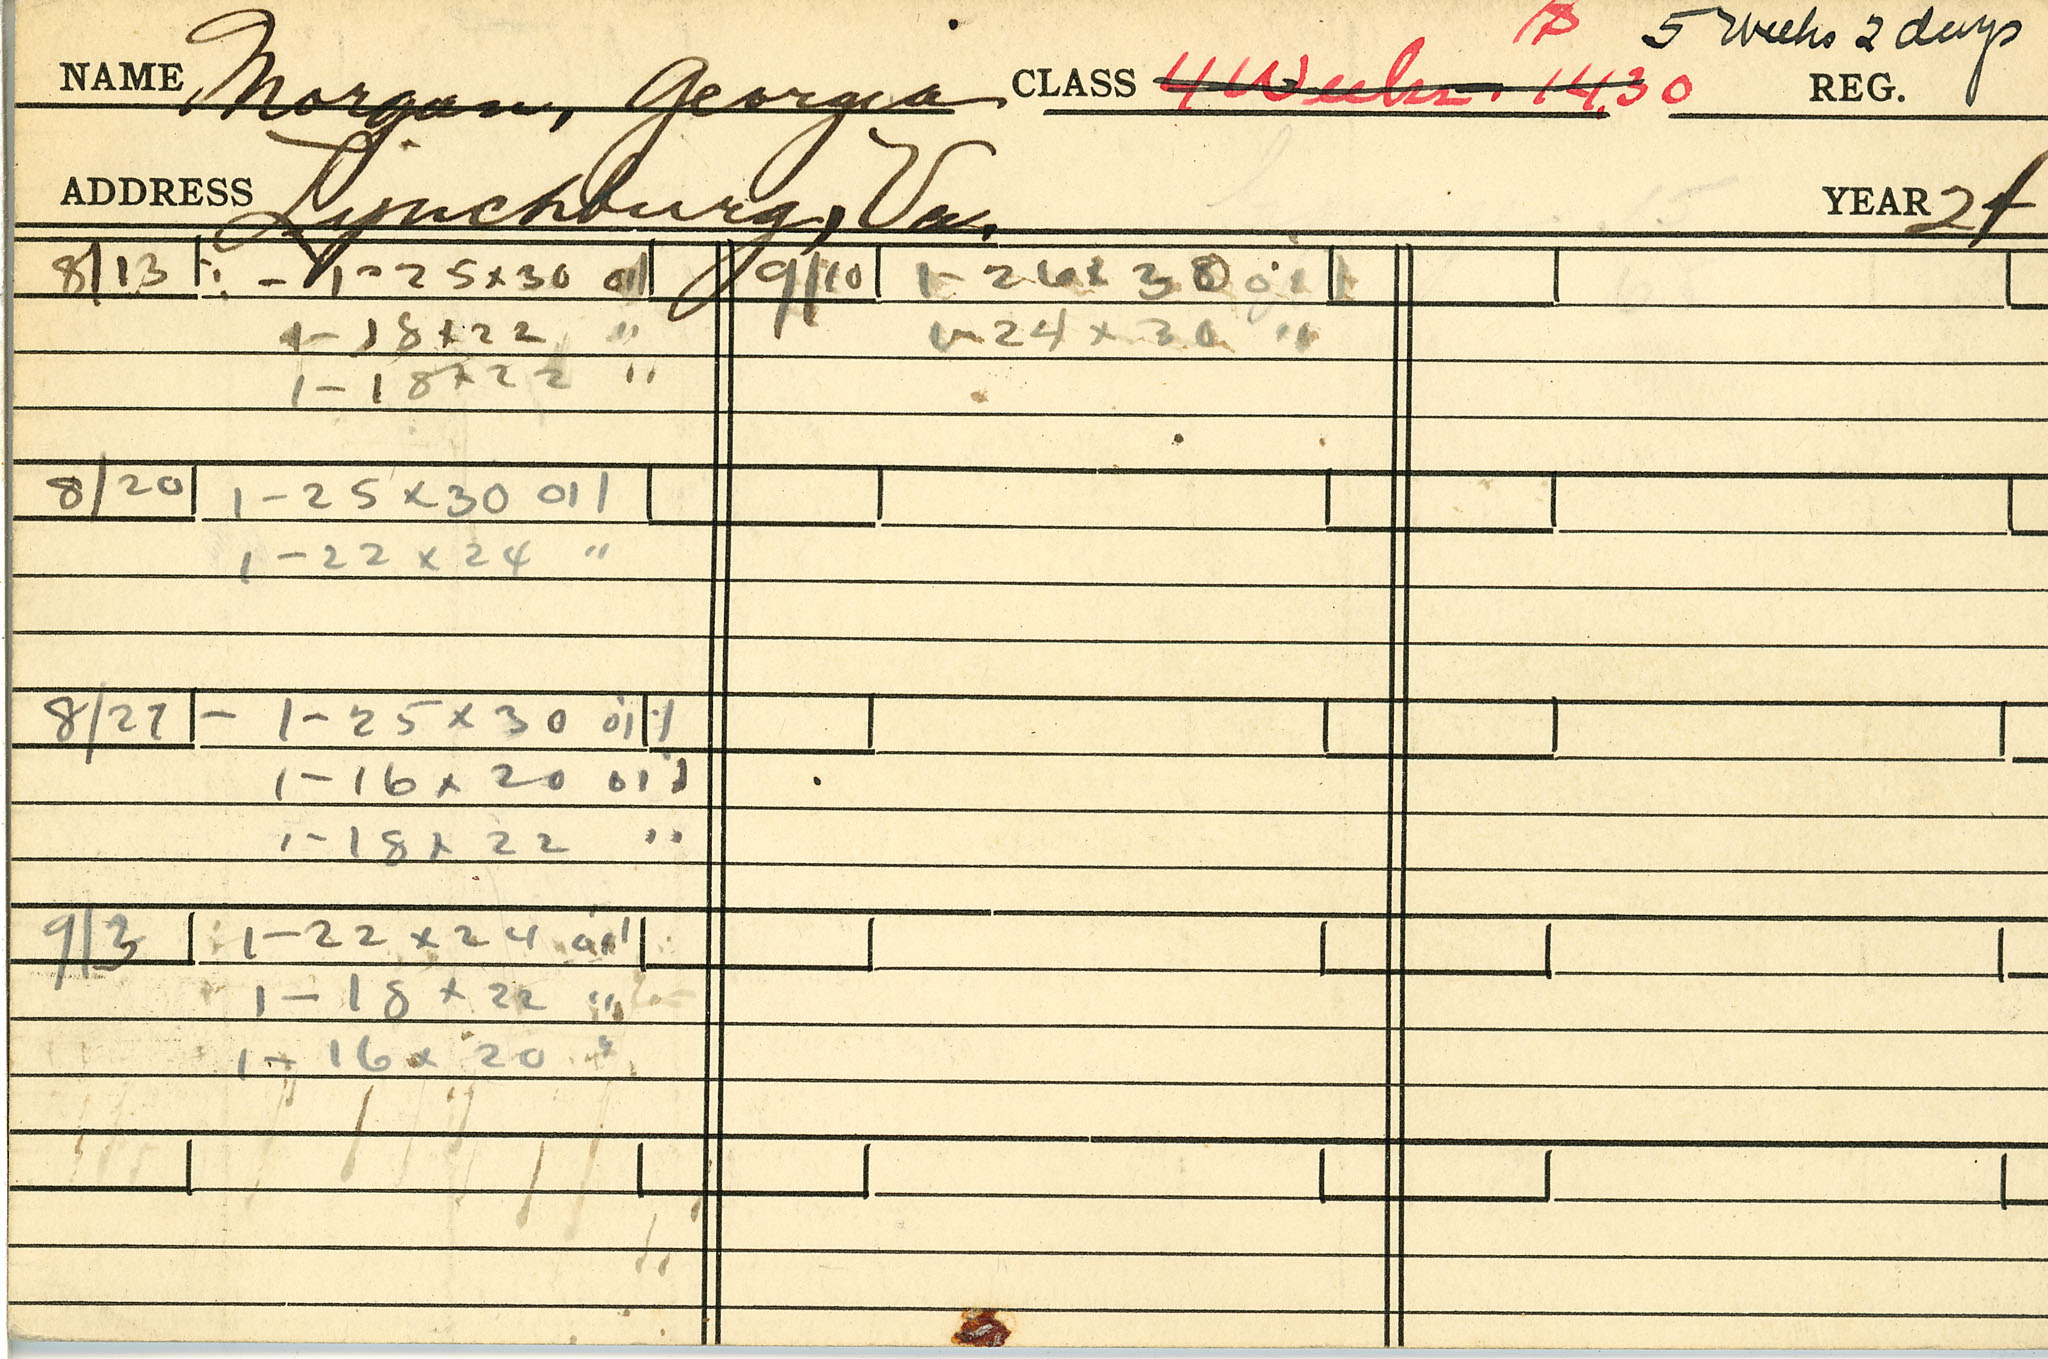 5 Weeks 2 days
NAME Morgan, Georgia CLASS 4 Weeks. 14.30 REG.
ADDRESS Lynchburg, Va. YEAR
8/13 - 1-25x30 oil
1-18x22 "
1-18x22 "
8/20 1-25x30 oil
1-22x24 "
8/27 - 1-25x30 oil
1-16x20 oil
1-18x22 "
9/3 1-22x24 oil
1-18x22 "
1-16x20 "
9/10 1-26x30 oil
1-24x30 "